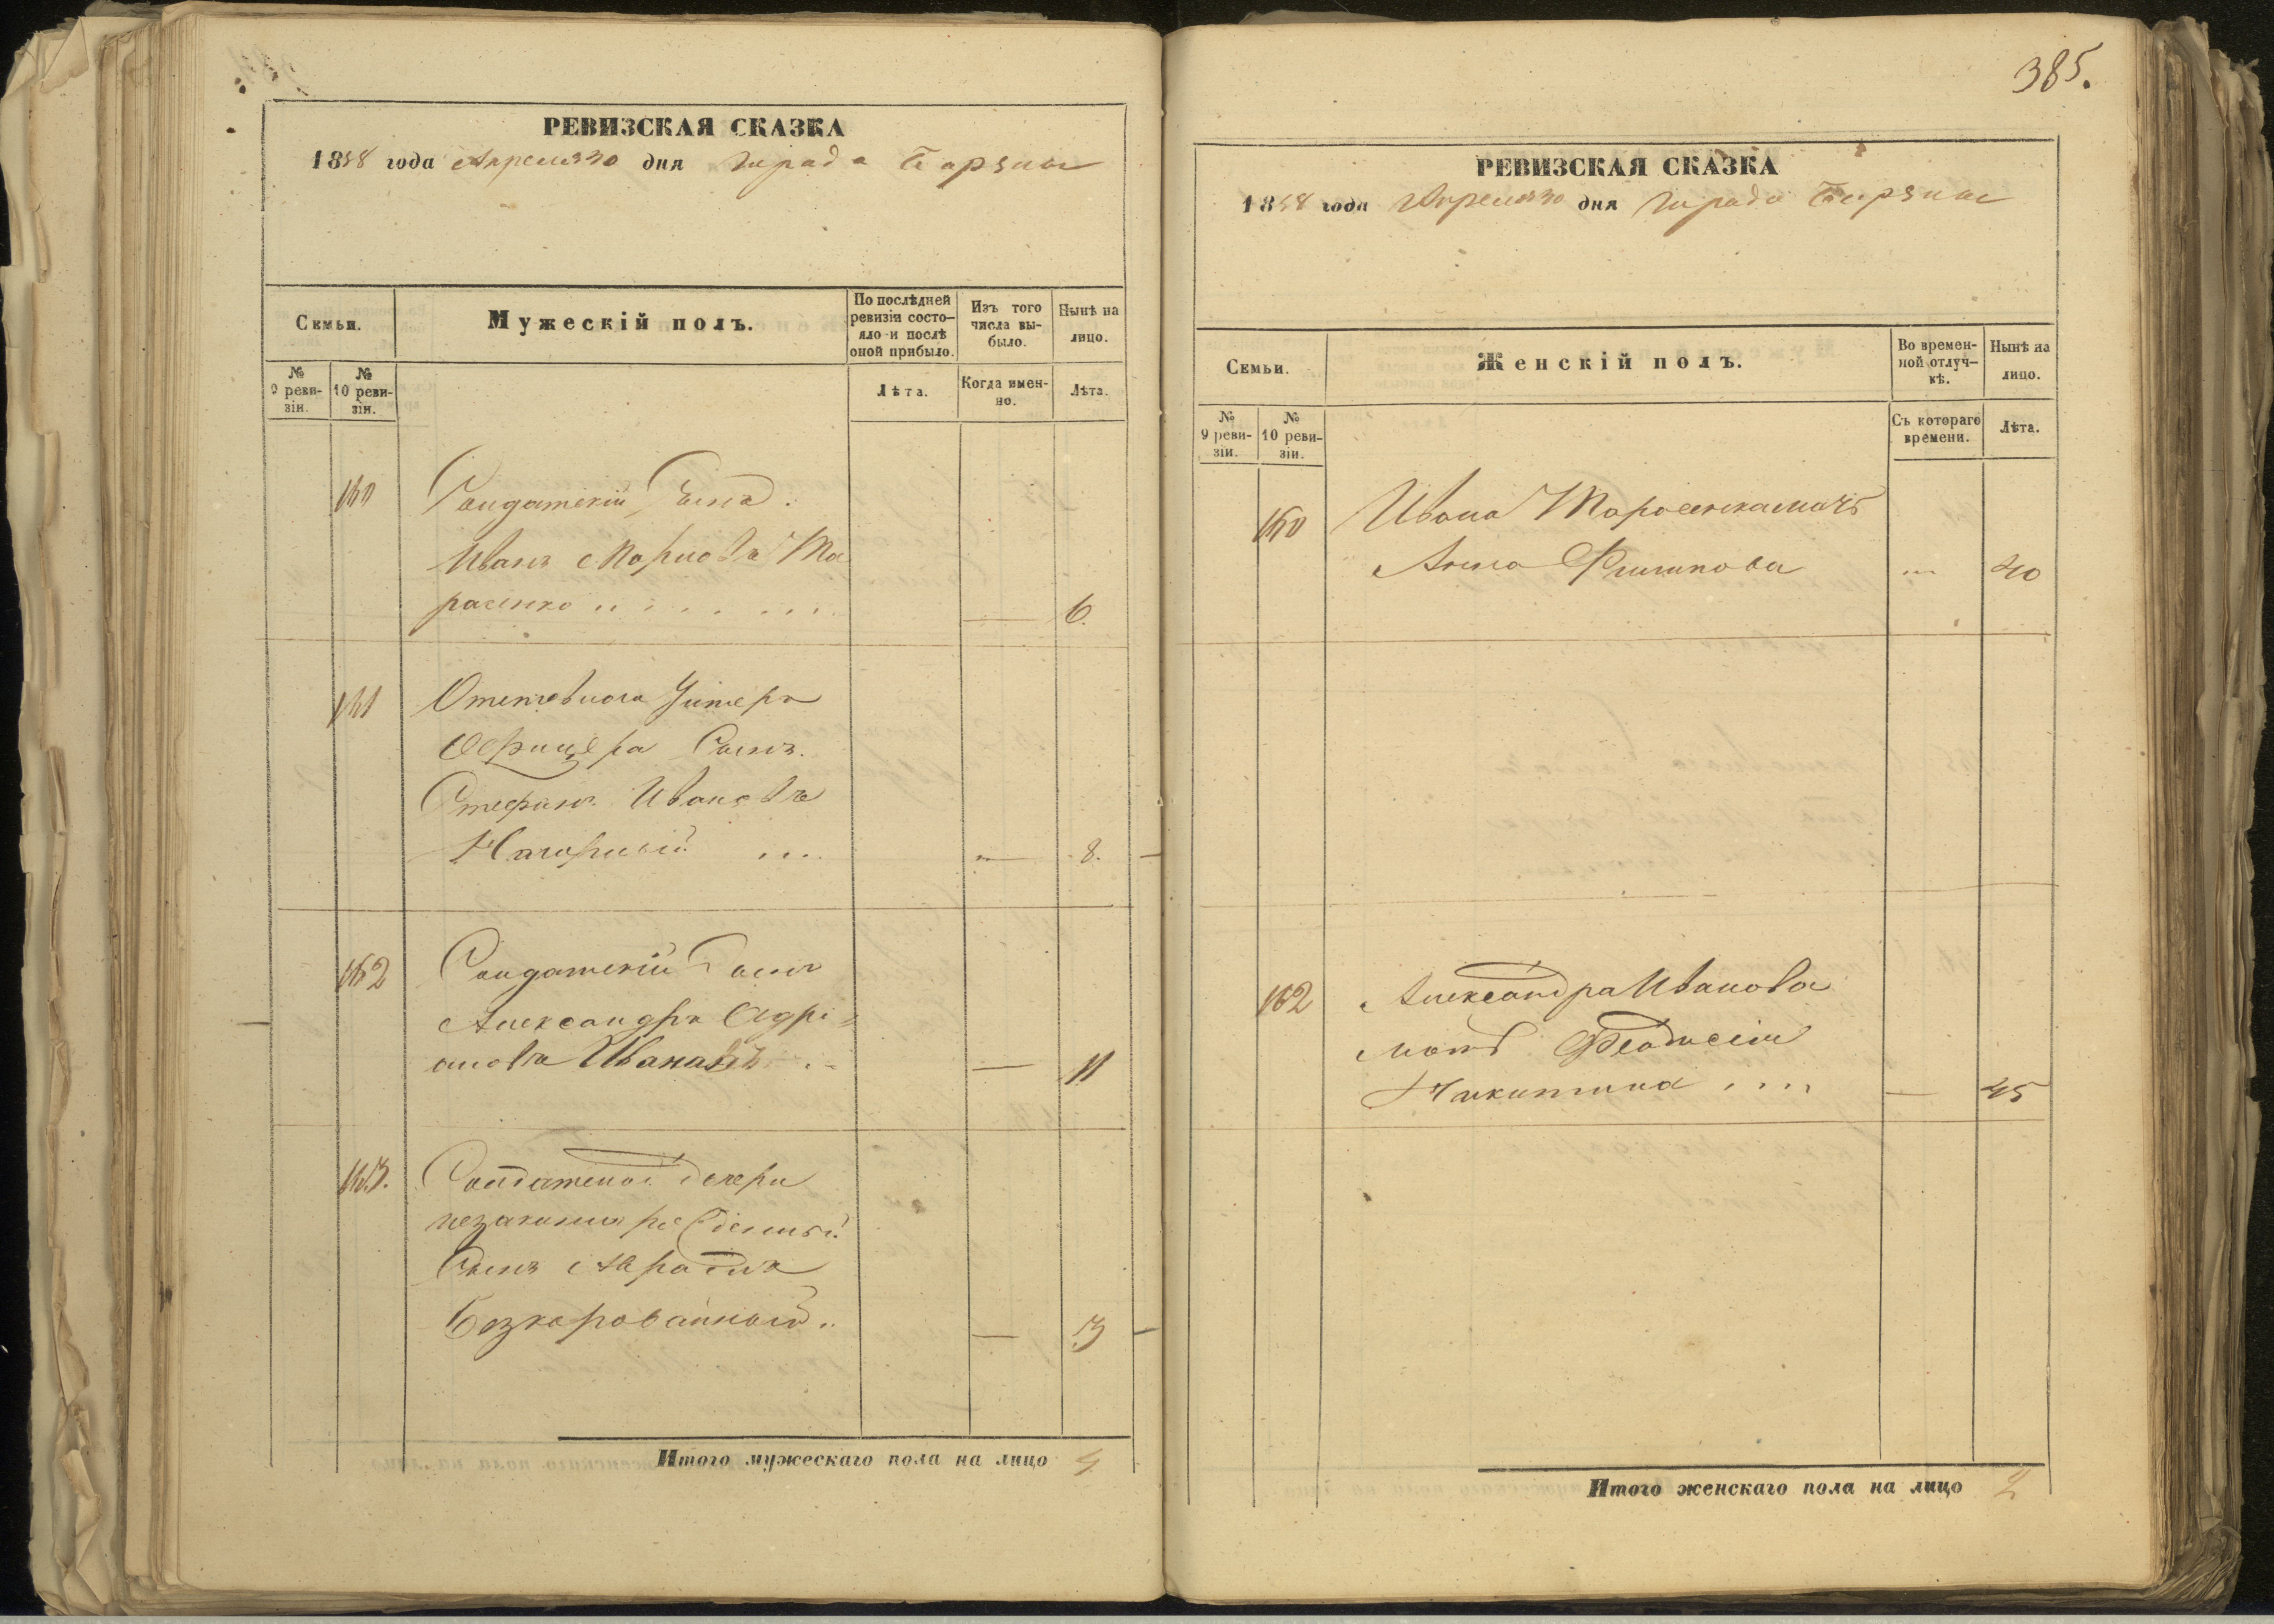 РЕВИЗСКАЯ СКАЗКА
1858 года Апреля 30 дня Города Борзны
Семьи.
Мужескій полъ.
По послѣдней ревизіи состо-яло и послѣ оной прибыло.
Изъ того числа вы-было.
Нынѣ на лицо.
№ 9 реви-зіи.
№ 10 реви-зіи.
Лѣта.
Когда имен-но.
Лѣта.
160 Солдатскій Сынъ.
Иванъ Марковъ Та
расенко 6.
161 Отставнаго Унтеръ
Офицера Сынъ.
Стефанъ Ивановъ
Нагорный 8.
162 Солдатскій Сынъ
Александръ Адрі=
ановъ 11
163. Солдатской дочери
незаконно рожденный
Сынъ
Безкорованный 3
Итого мужескаго пола на лицо 4
385.
РЕВИЗСКАЯ СКАЗКА
1858 года Апреля 30 дня Города Борзны
Семьи.
Женскій полъ.
Во времен-ной отлуч-кѣ.
Нынѣ на лицо.
№ 9 реви-зіи.
№ 10 реви-зіи.
Съ котораго времени.
Лѣта.
160 Ивана Тарасенка мать
Анна Филипова 40
162 Александра Иванова
мать Феодосія
Никитина 45
Итого женскаго пола на лицо 2